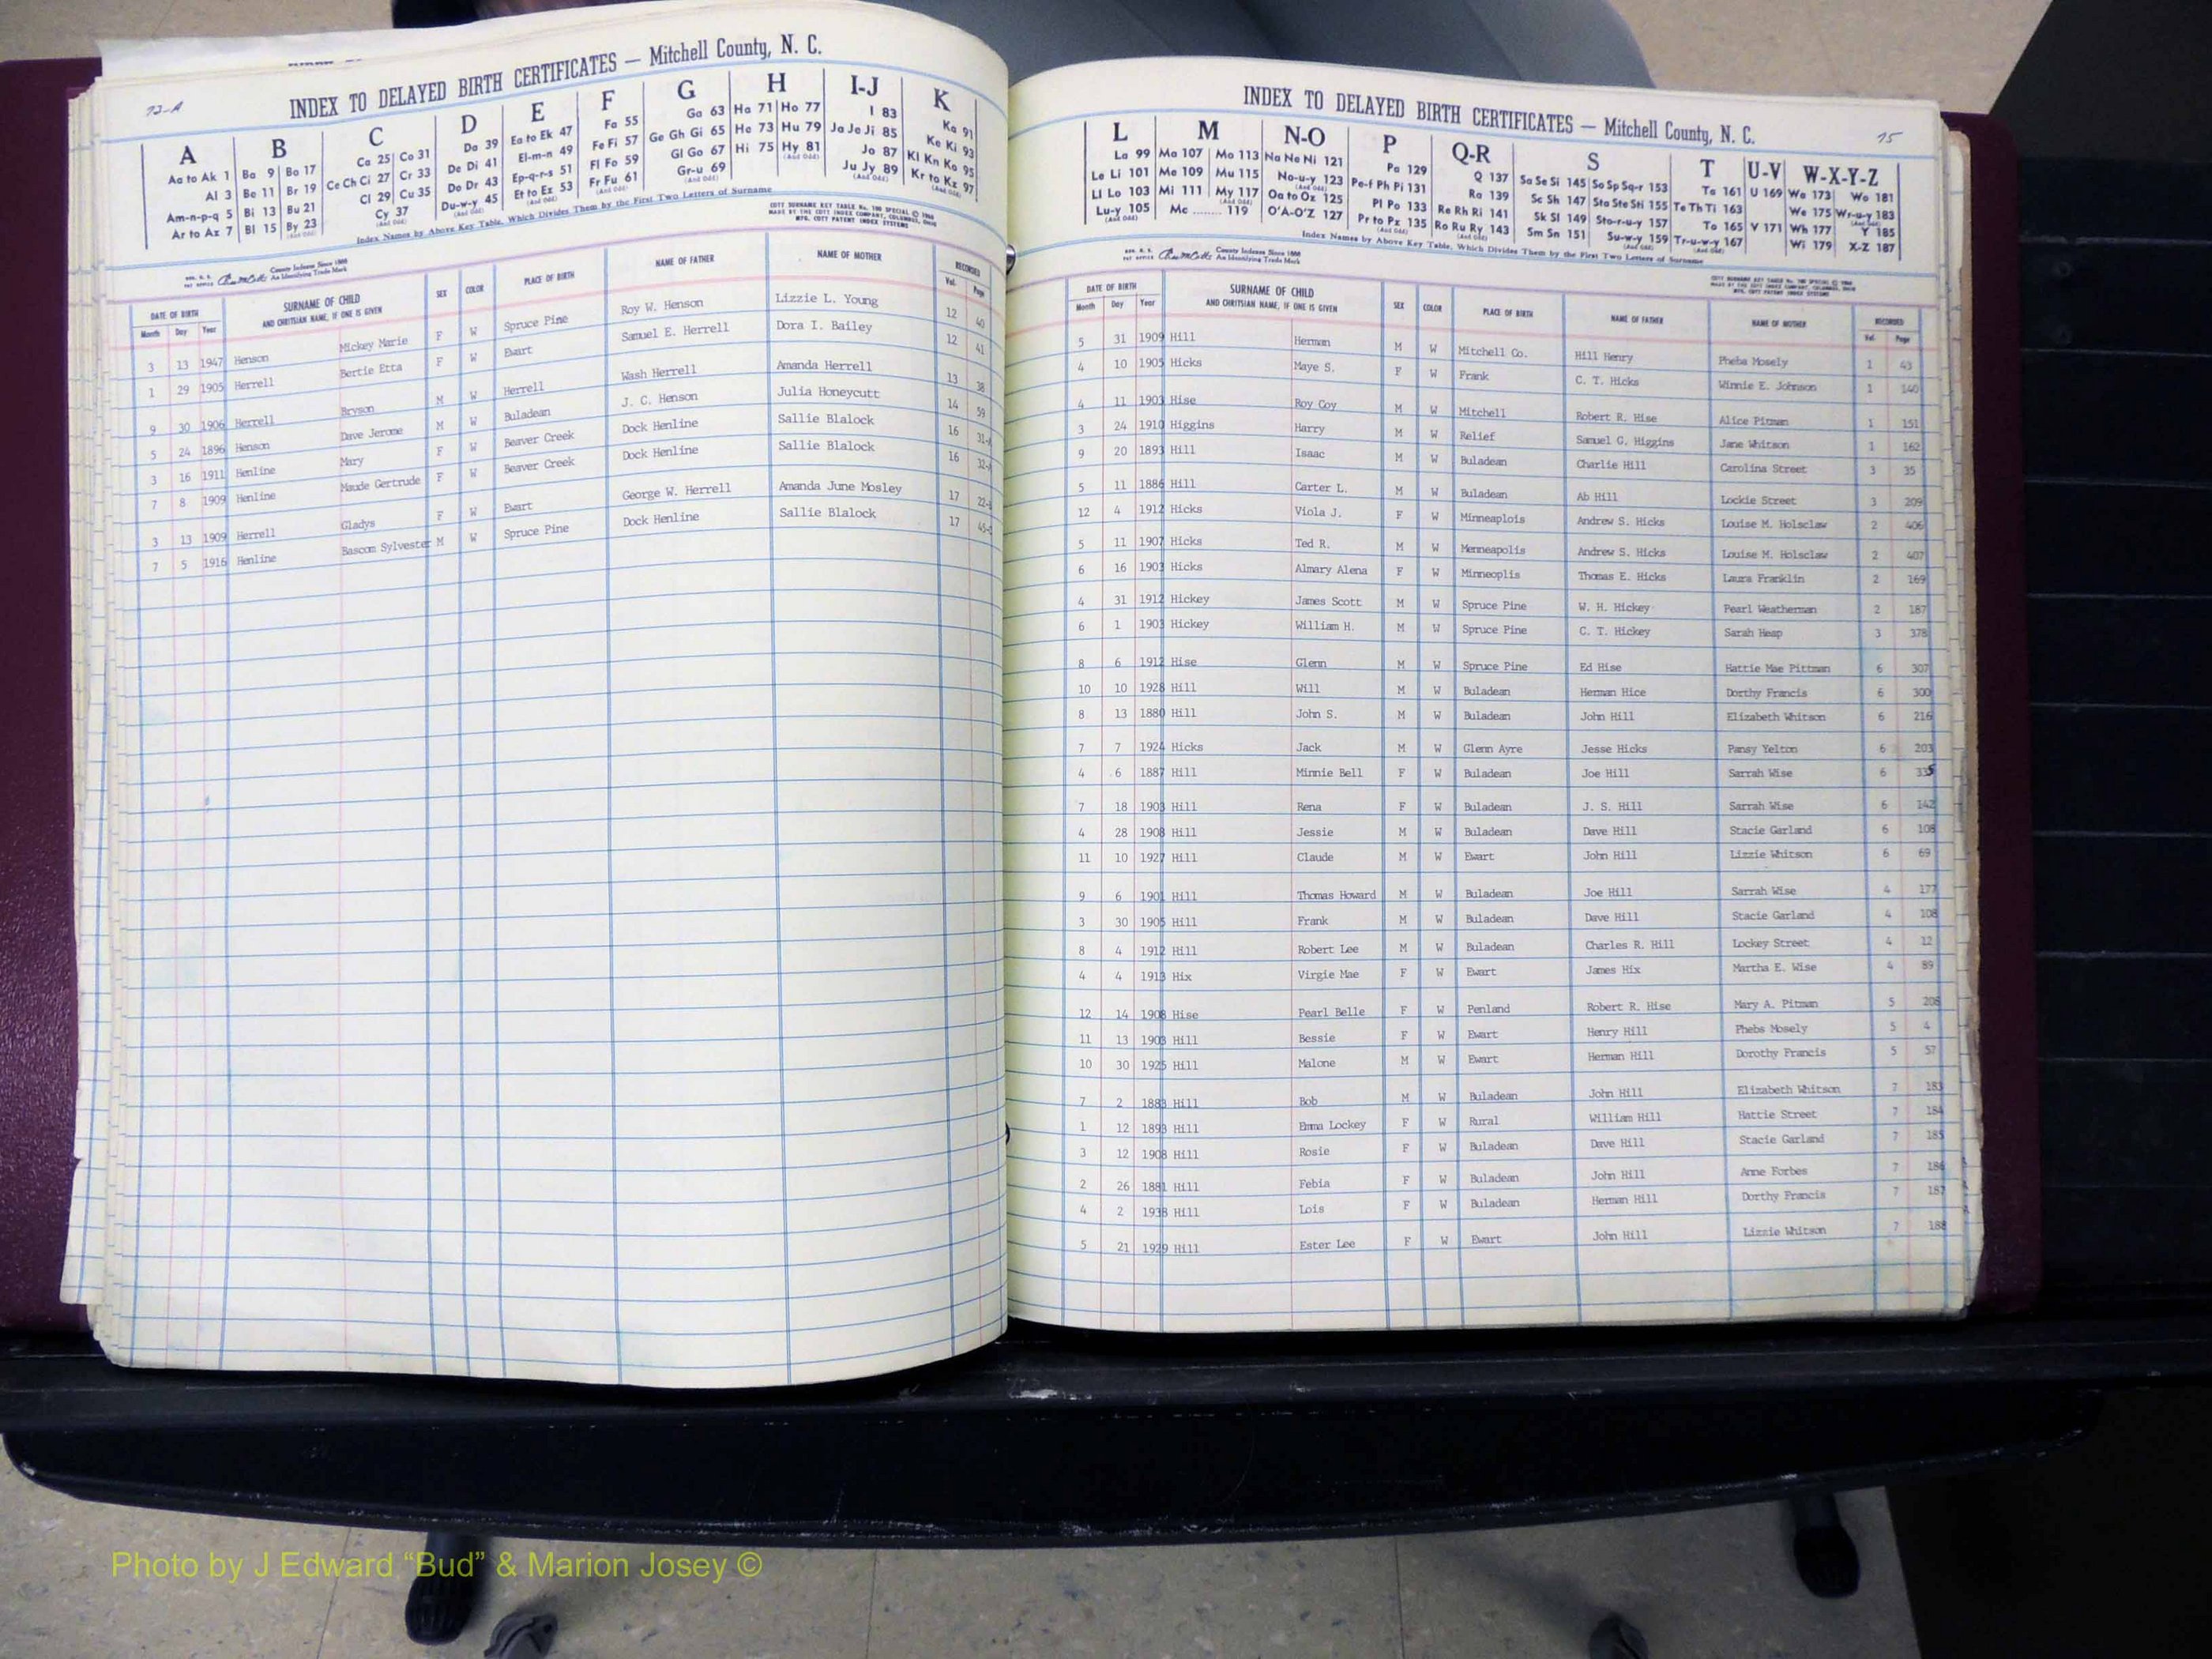 73-A
INDEX TO DELAYED BIRTH CERTIFICATES — Mitchell County, N. C.
A B C D E F G H I-J K
Aa to Ak 1 Ba 9 Bo 17 Ca 25 Co 31 Da 39 Ea to Ek 47 Fa 55 Ga 63 Ha 71 Ho 77 I 83 Ka 91
Al 3 Be 11 Br 19 Ce Ch Ci 27 Cr 33 De Di 41 El-m-n 49 Fe Fi 57 Ge Gh Gi 65 He 73 Hu 79 Ja Je Ji 85 Ke Ki 93
Am-n-p-q 5 Bi 13 Bu 21 Cl 29 Cu 35 Do Dr 43 Ep-q-r-s 51 Fl Fo 59 Gl Go 67 Hi 75 Hy 81 Jo 87 Kl Kn Ko 95
Ar to Az 7 Bl 15 By 23 Cy 37 Du-w-y 45 Et to Ez 53 Fr Fu 61 Gr-u 69 Ju Jy 89 Kr to Kz 97
Index Names by Above Key Table, Which Divides Them by the First Two Letters of Surname
COTT SURNAME KEY TABLE No. 100 SPECIAL © 1968
MADE BY THE COTT INDEX COMPANY, COLUMBUS, OHIO
MFG. COTT PATENT INDEX SYSTEMS
County Indexes Since 1888
An Identifying Trade Mark
DATE OF BIRTH SURNAME OF CHILD SEX COLOR PLACE OF BIRTH NAME OF FATHER NAME OF MOTHER RECORDED
Month Day Year AND CHRITSIAN NAME, IF ONE IS GIVEN Vol. Page
3 13 1947 Henson Mickey Marie F W Spruce Pine Roy W. Henson Lizzie L. Young 12 40
1 29 1905 Herrell Bertie Etta F W Ewart Samuel E. Herrell Dora I. Bailey 12 41
9 30 1906 Herrell Bryson M W Herrell Wash Herrell Amanda Herrell 13 38
5 24 1896 Henson Dave Jerome M W Buladean J. C. Henson Julia Honeycutt 14 59
3 16 1911 Henline Mary F W Beaver Creek Dock Henline Sallie Blalock 16 31-A
7 8 1909 Henline Maude Gertrude F W Beaver Creek Dock Henline Sallie Blalock 16
3 13 1909 Herrell Gladys F W Ewart George W. Herrell Amanda June Mosley 17
7 5 1916 Henline Bascom Sylvester M W Spruce Pine Dock Henline Sallie Blalock 17
INDEX TO DELAYED BIRTH CERTIFICATES — Mitchell County, N. C.
75
L M N-O P Q-R S T U-V W-X-Y-Z
La 99 Ma 107 Mo 113 Na Ne Ni 121 Pa 129 Q 137 Sa Se Si 145 So Sp Sq-r 153 Ta 161 U 169 Wa 173 Wo 181
Le Li 101 Me 109 Mu 115 No-u-y 123 Pe-f Ph Pi 131 Ra 139 Sc Sh 147 Sta Ste Sti 155 Te Th Ti 163 We 175 Wr-u-y 183
Ll Lo 103 Mi 111 My 117 Oa to Oz 125 Pl Po 133 Re Rh Ri 141 Sk Sl 149 Sto-r-u-y 157 To 165 V 171 Wh 177 Y 185
Lu-y 105 Mc ........ 119 O'A-O'Z 127 Pr to Pz 135 Ro Ru Ry 143 Sm Sn 151 Su-w-y 159 Tr-u-w-y 167 Wi 179 X-Z 187
Index Names by Above Key Table, Which Divides Them by the First Two Letters of Surname
County Indexes Since 1888
An Identifying Trade Mark
DATE OF BIRTH SURNAME OF CHILD SEX COLOR PLACE OF BIRTH NAME OF FATHER NAME OF MOTHER RECORDED
Month Day Year AND CHRITSIAN NAME, IF ONE IS GIVEN Vol. Page
5 31 1909 Hill Herman M W Mitchell Co. Hill Henry Phebe Mosely 1 43
4 10 1905 Hicks Maye S. F W Frank C. T. Hicks Winnie E. Johnson 1 140
4 11 1903 Hise Roy Coy M W Mitchell Robert R. Hise Alice Pitman 1 151
3 24 1910 Higgins Harry M W Relief Samuel G. Higgins Jane Whitson 1 162
9 20 1893 Hill Isaac M W Buladean Charlie Hill Carolina Street 3 35
5 11 1886 Hill Carter L. M W Buladean Ab Hill Lockie Street 3 209
12 4 1912 Hicks Viola J. F W Minneaplois Andrew S. Hicks Louise M. Holsclaw 2 406
5 11 1907 Hicks Ted R. M W Menneapolis Andrew S. Hicks Louise M. Holsclaw 2 407
6 16 1903 Hicks Almary Alena F W Minneoplis Thomas E. Hicks Laura Franklin 2 169
4 31 1912 Hickey James Scott M W Spruce Pine W. H. Hickey Pearl Weatherman 2 187
6 1 1903 Hickey William H. M W Spruce Pine C. T. Hickey Sarah Heap 3 378
8 6 1912 Hise Glenn M W Spruce Pine Ed Hise Hattie Mae Pittman 6 307
10 10 1928 Hill Will M W Buladean Herman Hice Dorthy Francis 6 300
8 13 1880 Hill John S. M W Buladean John Hill Elizabeth Whitson 6 216
7 7 1924 Hicks Jack M W Glenn Ayre Jesse Hicks Pansy Yelton 6 203
4 6 1887 Hill Minnie Bell F W Buladean Joe Hill Sarrah Wise 6 335
7 18 1903 Hill Rena F W Buladean J. S. Hill Sarrah Wise 6 142
4 28 1908 Hill Jessie M W Buladean Dave Hill Stacie Garland 6 108
11 10 1927 Hill Claude M W Ewart John Hill Lizzie Whitson 6 69
9 6 1901 Hill Thomas Howard M W Buladean Joe Hill Sarrah Wise 4 177
3 30 1905 Hill Frank M W Buladean Dave Hill Stacie Garland 4 108
8 4 1912 Hill Robert Lee M W Buladean Charles R. Hill Lockey Street 4 12
4 4 1913 Hix Virgie Mae F W Ewart James Hix Martha E. Wise 4 89
12 14 1908 Hise Pearl Belle F W Penland Robert R. Hise Mary A. Pitman 5 206
11 13 1903 Hill Bessie F W Ewart Henry Hill Phebs Mosely 5 4
10 30 1925 Hill Malone M W Ewart Herman Hill Dorothy Francis 5 57
7 2 1883 Hill Bob M W Buladean John Hill Elizabeth Whitson 7 183
1 12 1893 Hill Emma Lockey F W Rural William Hill Hattie Street 7 184
3 12 1908 Hill Rosie F W Buladean Dave Hill Stacie Garland 7 185
2 26 1881 Hill Febia F W Buladean John Hill Anne Forbes 7 186
4 2 1938 Hill Lois F W Buladean Herman Hill Dorthy Francis 7 187
5 21 1929 Hill Ester Lee F W Ewart John Hill Lizzie Whitson 7 188
Photo by J Edward “Bud” & Marion Josey ©